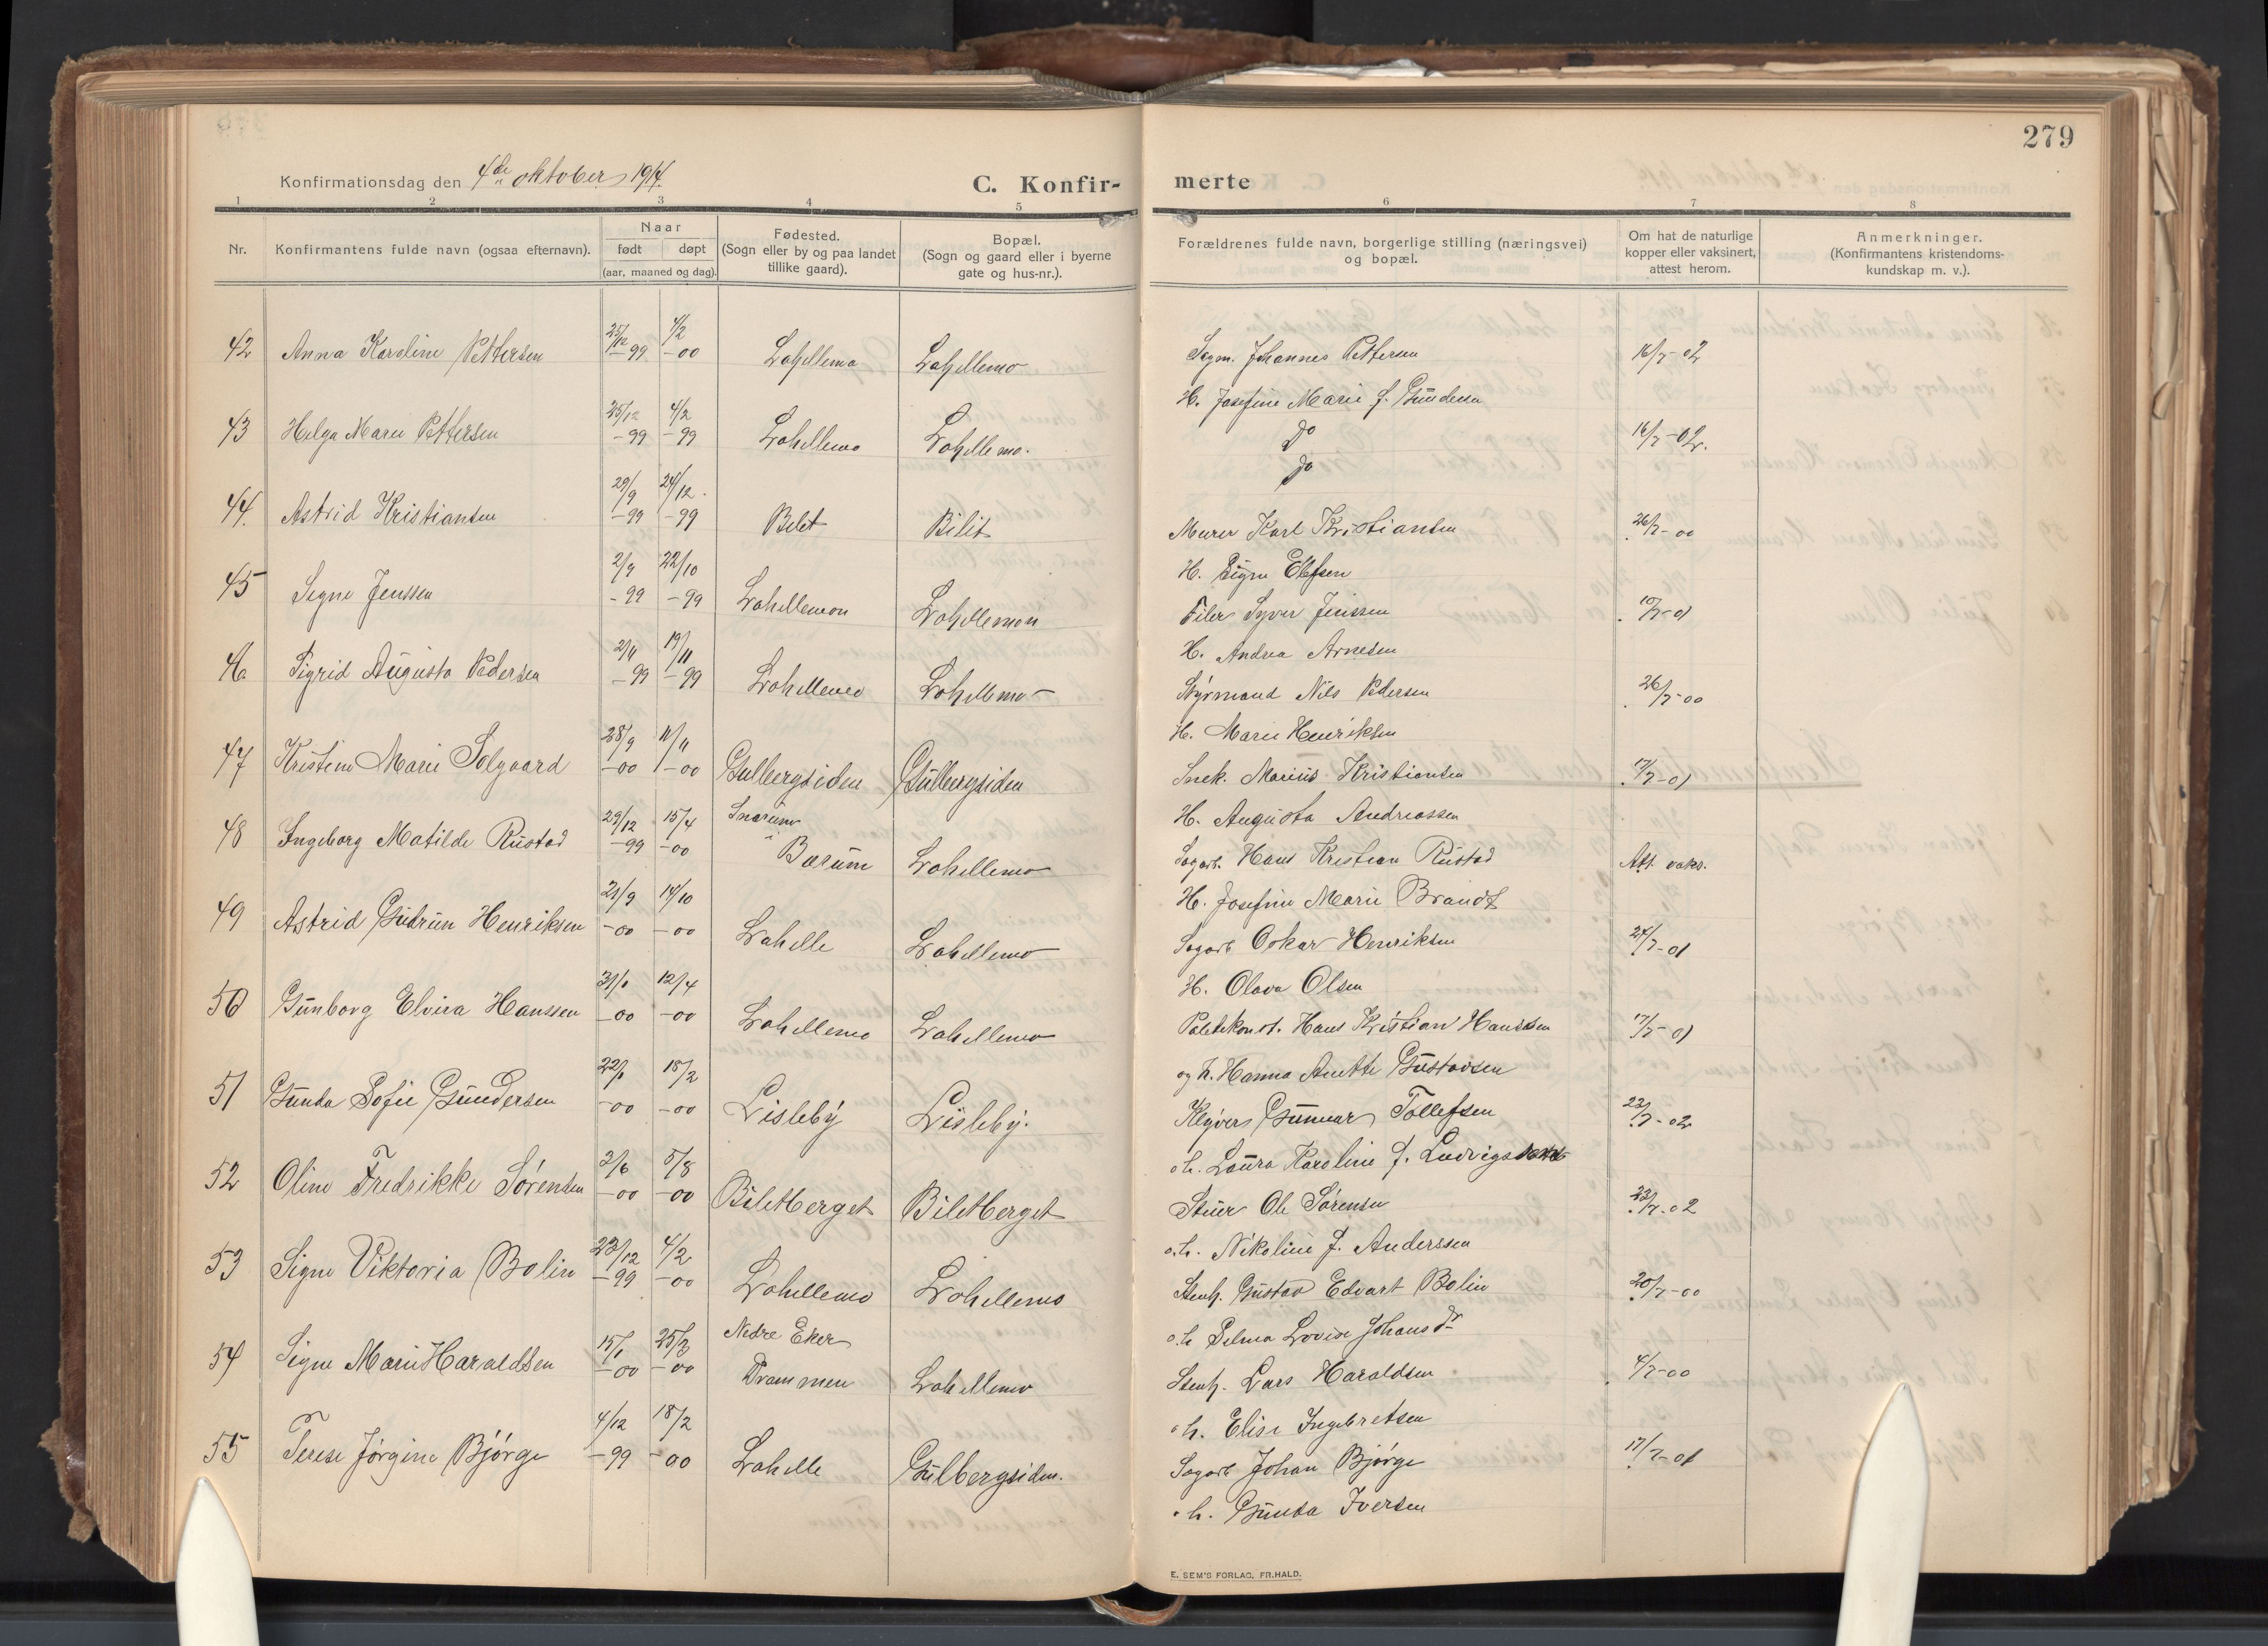 279
Konfirmationsdag den 4de oktober 1914.
C. Konfir- merte
1 2 3 4 5 6 7 8
Nr.
Konfirmantens fulde navn (ogsaa efternavn).
Naar
født døpt
(aar, maaned og dag).
Fødested.
(Sogn eller by og paa landet
tillike gaard).
Bopæl.
(Sogn og gaard eller i byerne
gate og hus-nr.).
Forældrenes fulde navn, borgerlige stilling (næringsvei)
og bopæl.
Om hat de naturlige
kopper eller vaksinert,
attest herom.
Anmerkninger.
(Konfirmantens kristendoms-
kundskap m. v.).
25/12 4/2
42 Anna Karoline Pettersen -99 -00 Lahellemo Lahellemo Sagm. Johannes Pettersen 16/7-02
H. Josefine Marie f. Gundersen
25/12 4/2
43 Helga Marie Pettersen -99 -99 Lahellemo Lahellemo. Do 16/7-02.
Do
29/9 24/12.
44. Astrid Kristiansen -99 -99 Bilet Bilit Murer Karl Kristiansen 26/7-00
H. Signe Ellefsen
2/9 22/10
45 Signe Jenssen -99 -99 Lahellemon Lahellemon Filer Syver Jenssen 10/7-01
H. Andrea Arnesen
2/11 19/11
46 Sigrid Augusta Pedersen -99 -99 Lahellemo Lahellemo Styrmand Nils Pedersen 26/7-00
H. Marie Henriksen
28/9 11/11
47 Kristine Marie Solgaard -00 -00 Gulbergsiden Gulbergsiden Snek. Marius Kristiansen 17/7-01
H. Augusta Andreassen
29/12 15/4 Snarum
48 Ingeborg Matilde Rustad -99 -00 i Bærum Lahellemo Sagarb. Hans Kristian Rustad Att. vaks.
H. Josefine Marie Brandt
21/9 14/10
49 Astrid Gudrun Henriksen -00 -00 Lahelle Lahellemo Sagarb Oskar Henriksen 24/7-01
H. Olava Olsen
31/1 12/4
50 Gunborg Elvira Hanssen -00 -00 Lahellemo Lahellemo Politikonst. Hans Kristian Hanssen 17/7-01
og h. Hanna Anette Gustavsen
22/1 18/2
51 Gunda Sofie Gundersen -00 -00 Lisleby Lisleby. Kløvers Gunnar Tollefsen 23/7-02
o h. Laura Karoline f. Ludvigsen
2/6 5/8
52 Oline Fredrikke Sørensen -00 -00 Biletberget Biletberget Stuer Ole Sørensen 23/7-02
o.h. Nikoline f. Anderssen
23/12 4/2
53 Signe Viktoria Bolin -99 -00 Lahellemo Lahellemo Stenh. Gustav Edvart Bolin 20/7-00
o.h Selma Lovise Johansdr
15/1 25/3 Nedre Eker
54 Signe Marie Haraldsen -00 -00 Drammen Lahellemo Stenh. Lars Haraldsen 4/7-00
o h. Elise Ingebretsen
4/12 18/2
55 Terese Jørgine Bjørge -99 -00 Lahelle Gulbergsiden. Sagarb Johan Bjørge 17/7-01
o h. Gunda Iversen
E. SEM'S FORLAG, FR.HALD.